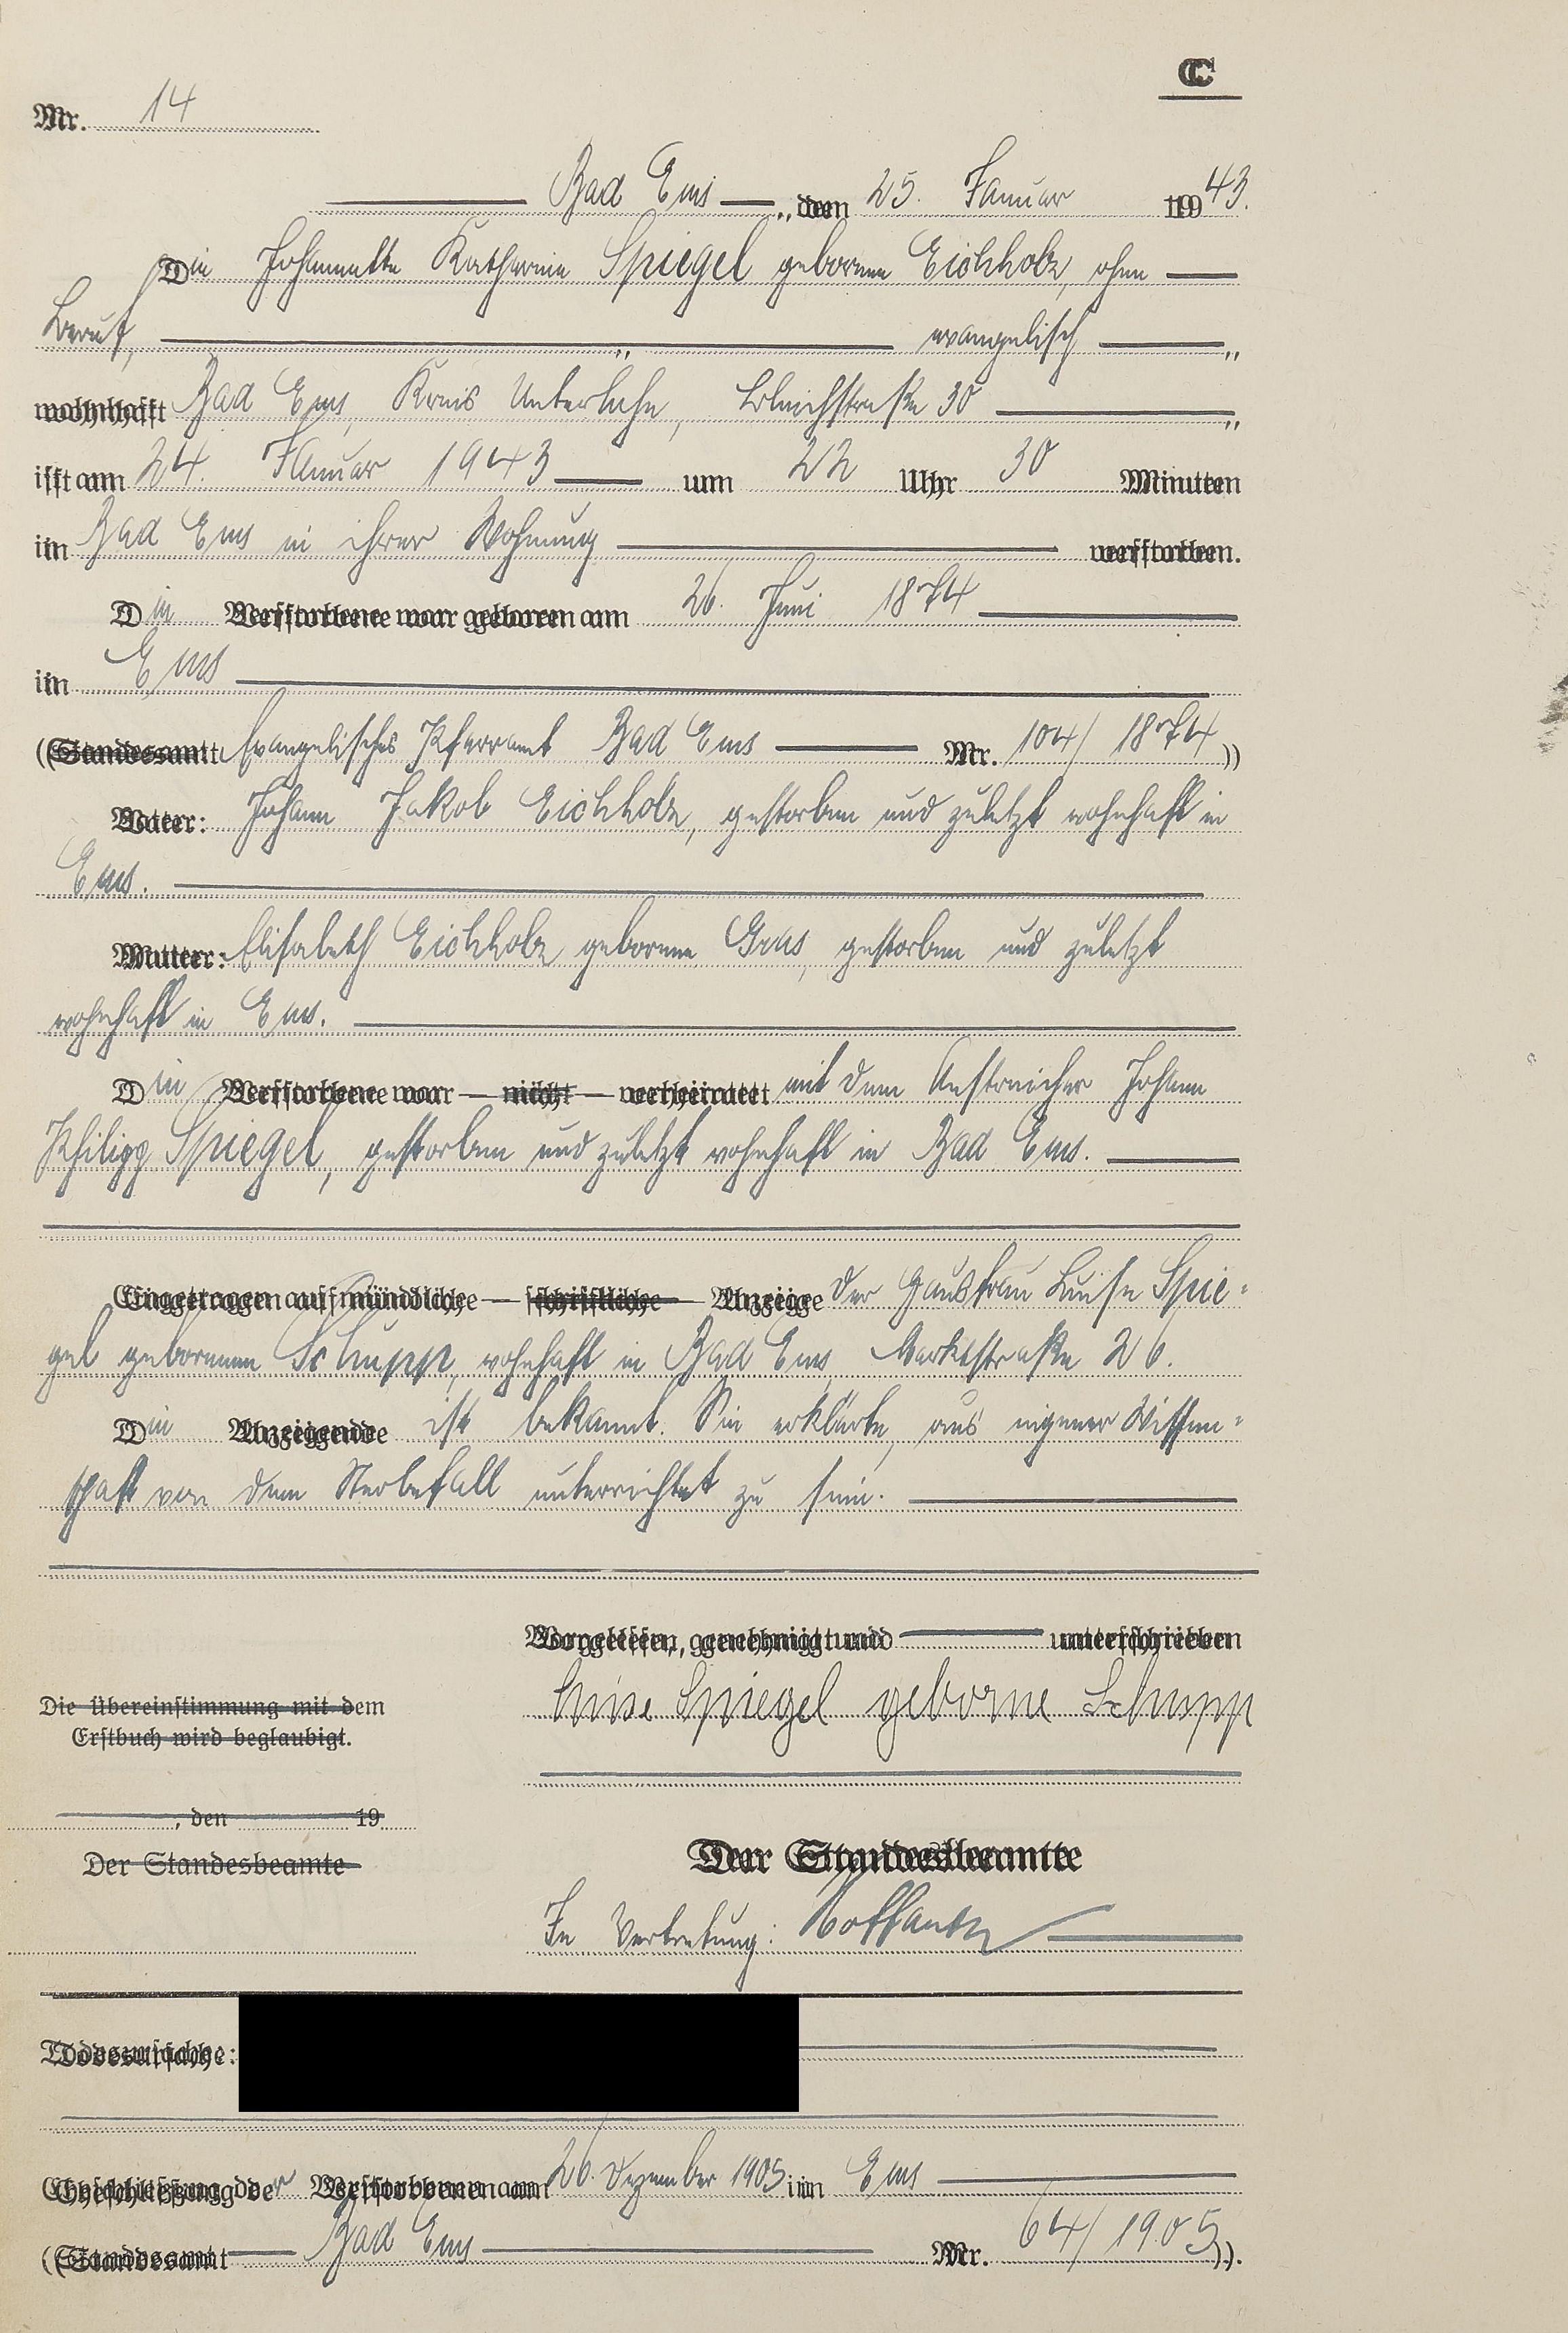 C
Nr. 14
Bad Ems, den 25. Januar 1943.
Die Johannette Katharine Spiegel geborene Eichholz, ohne
Beruf, evangelisch,
wohnhaft Bad Ems, Kreis Unterlahn, Bleichstraße 30,
ist am 24. Januar 1943 um 22 Uhr 30 Minuten
in Bad Ems in ihrer Wohnung verstorben.
Die Verstorbene war geboren am 26. Juni 1874
in Ems
(Standesamt Evangelisches Pfarramt Bad Ems Nr. 104/1874)
Vater: Johann Jakob Eichholz, gestorben und zuletzt wohnhaft in
Ems.
Mutter: Elisabeth Eichholz geborene Gras, gestorben und zuletzt
wohnhaft in Ems.
Die Verstorbene war — nicht — verheiratet mit dem Anstreicher Johann
Philipp Spiegel, gestorben und zuletzt wohnhaft in Bad Ems.
Eingetragen auf mündliche — schriftliche — Anzeige der Hausfrau Luise Spie=
gel geborenen Schupp, wohnhaft in Bad Ems, Marktstraße 26.
Die Anzeigende ist bekannt. Sie erklärte, aus eigener Wissen=
schaft von dem Sterbefall unterrichtet zu sein.
Vorgelesen, genehmigt und unterschrieben
Luise Spiegel geborne Schupp
Die Übereinstimmung mit dem
Erstbuch wird beglaubigt.
, den 19
Der Standesbeamte
Der Standesbeamte
In Vertretung:
Todesursache:
Eheschließung der Verstorbenen am 26. Dezember 1905 in Ems
(Standesamt Bad Ems Nr. 64/1905).